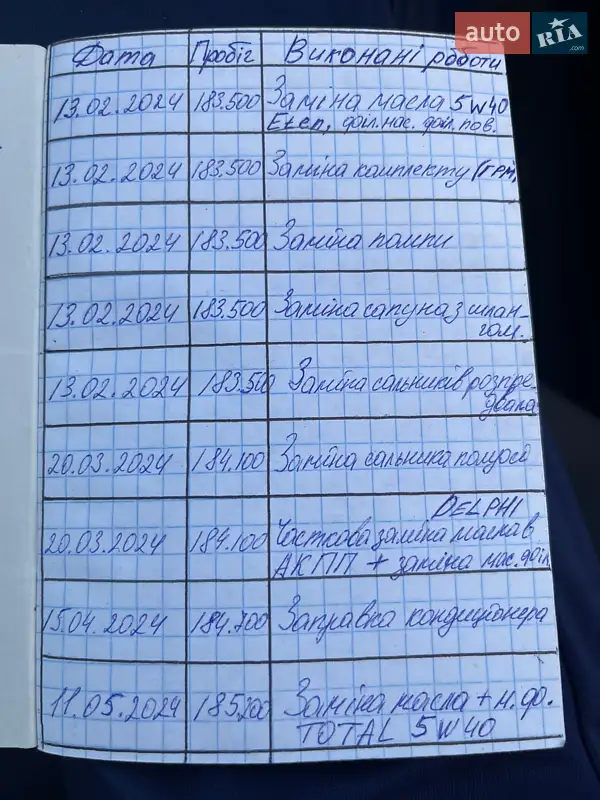 auto RIA .com
Дата Пробіг Виконані роботи
13.02.2024 183.500 Заміна масла 5W40
філ.мас. філ.пов.
13.02.2024 183.500 Заміна комплекту (ГРМ)
13.02.2024 183.500 Заміна помпи
13.02.2024 183.500 Заміна сапуна з шлан-
гом.
13.02.2024 183.500 Заміна сальників розпре-
двала
20.03.2024 184.100 Заміна сальника полуосі
DELPHI
20.03.2024 184.100 Часткова заміна масла в
АКПП + заміна мас.філ.
15.04.2024 184.700 Заправка кондиціонера
11.05.2024 185.200 Заміна масла + м.ф.
TOTAL 5W40